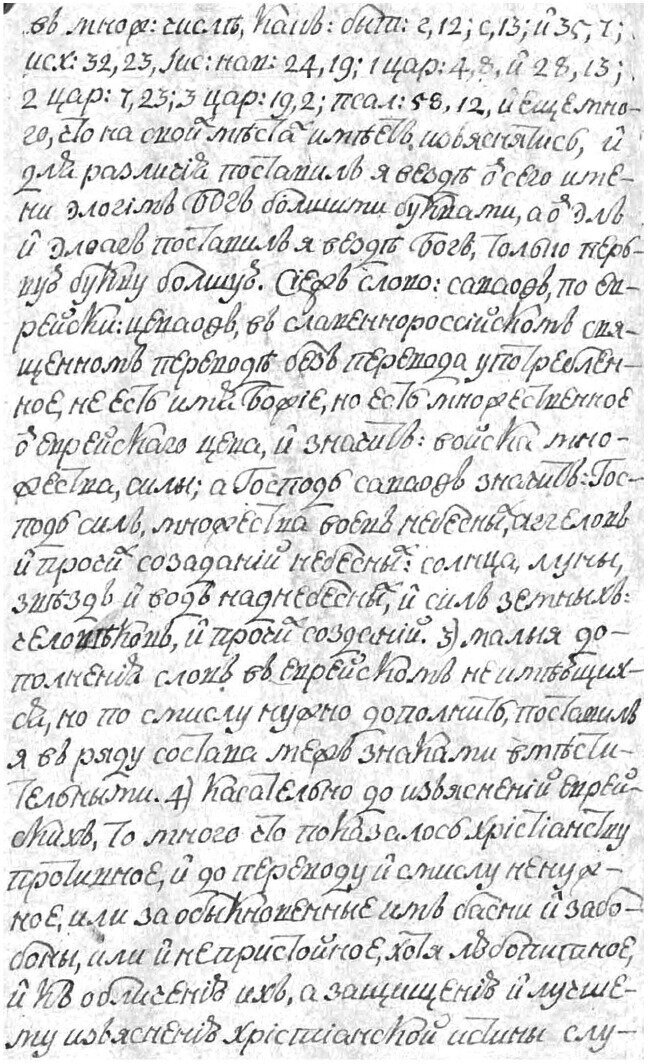 въ множ: числѣ, какъ: быт: г, 12; є, 13; и҆ 35, 7;
исх: 32, 23, Іис: нав: 24, 19; 1 цар: 4, 8, и҆ 28, 13;
2 цар: 7, 23; 3 цар: 19, 2; псал: 58, 12, и҆ еще мно-
го, что на свои мѣста имѣетъ изъяснятись, и҆
для различія поставилъ я вездѣ ѿ сего име-
ни элогімъ БОГЪ болшими буквами, а ѿ элъ
и҆ элоагъ поставилъ я вездѣ Богъ, только перь-
вую букву болшую. Сіежъ слово: саваоѳъ, по ев-
рейски: цеваоѳъ, въ славеннороссійскомъ свя-
щенномъ переводѣ безъ перевода употреблен-
ное, не есть имя Божіе, но есть множественное
ѿ еврейскаго цева, и҆ значитъ: войска мно-
жества, силы; а Господь саваоѳъ значитъ: Гос-
подь силъ, множества воевъ небесныхъ, аггеловъ
и҆ прочихъ созаданій небесныхъ: солнца, луны,
звѣздъ и҆ водъ наднебесныхъ, и҆ силъ земныхъ:
человѣковъ, и҆ прочихъ созданій. 3) малыя до-
полненія словъ въ еврейскомъ не имѣющих-
ся, но по смислу нужно дополнить, поставилъ
я въ ряду состава межъ знаками вмѣсти-
тельными. 4) Касательно до изъясненій еврей-
скихъ, то много что показалось хрістіанству
противное, и҆ до переводу и҆ смислу ненуж-
ное, или за обыкновенные имъ басни и҆ забо-
боны, или и҆ непристойное, хотя любопитное,
и҆ къ обличенію ихъ, а защищенію и҆ лучше-
му изъясненію хрістіанской истины слу-